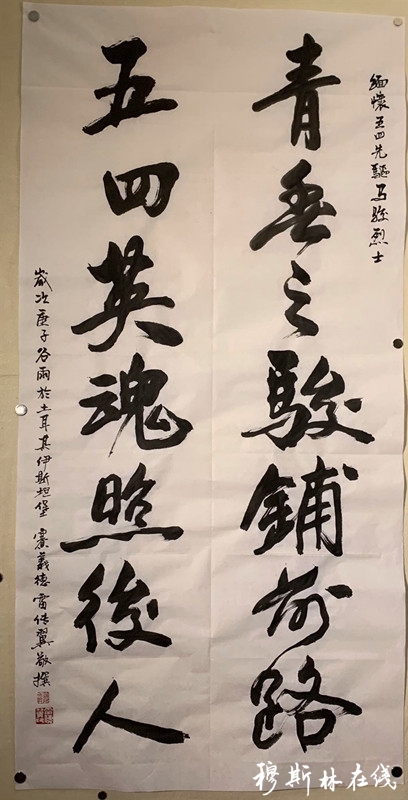 缅懷五四先驅马骏烈士
青春之駿鋪前路
五四英魂照後人
歲次庚子谷雨於土耳其伊斯坦堡 賽義德雷传翼敬撰
穆斯林在线